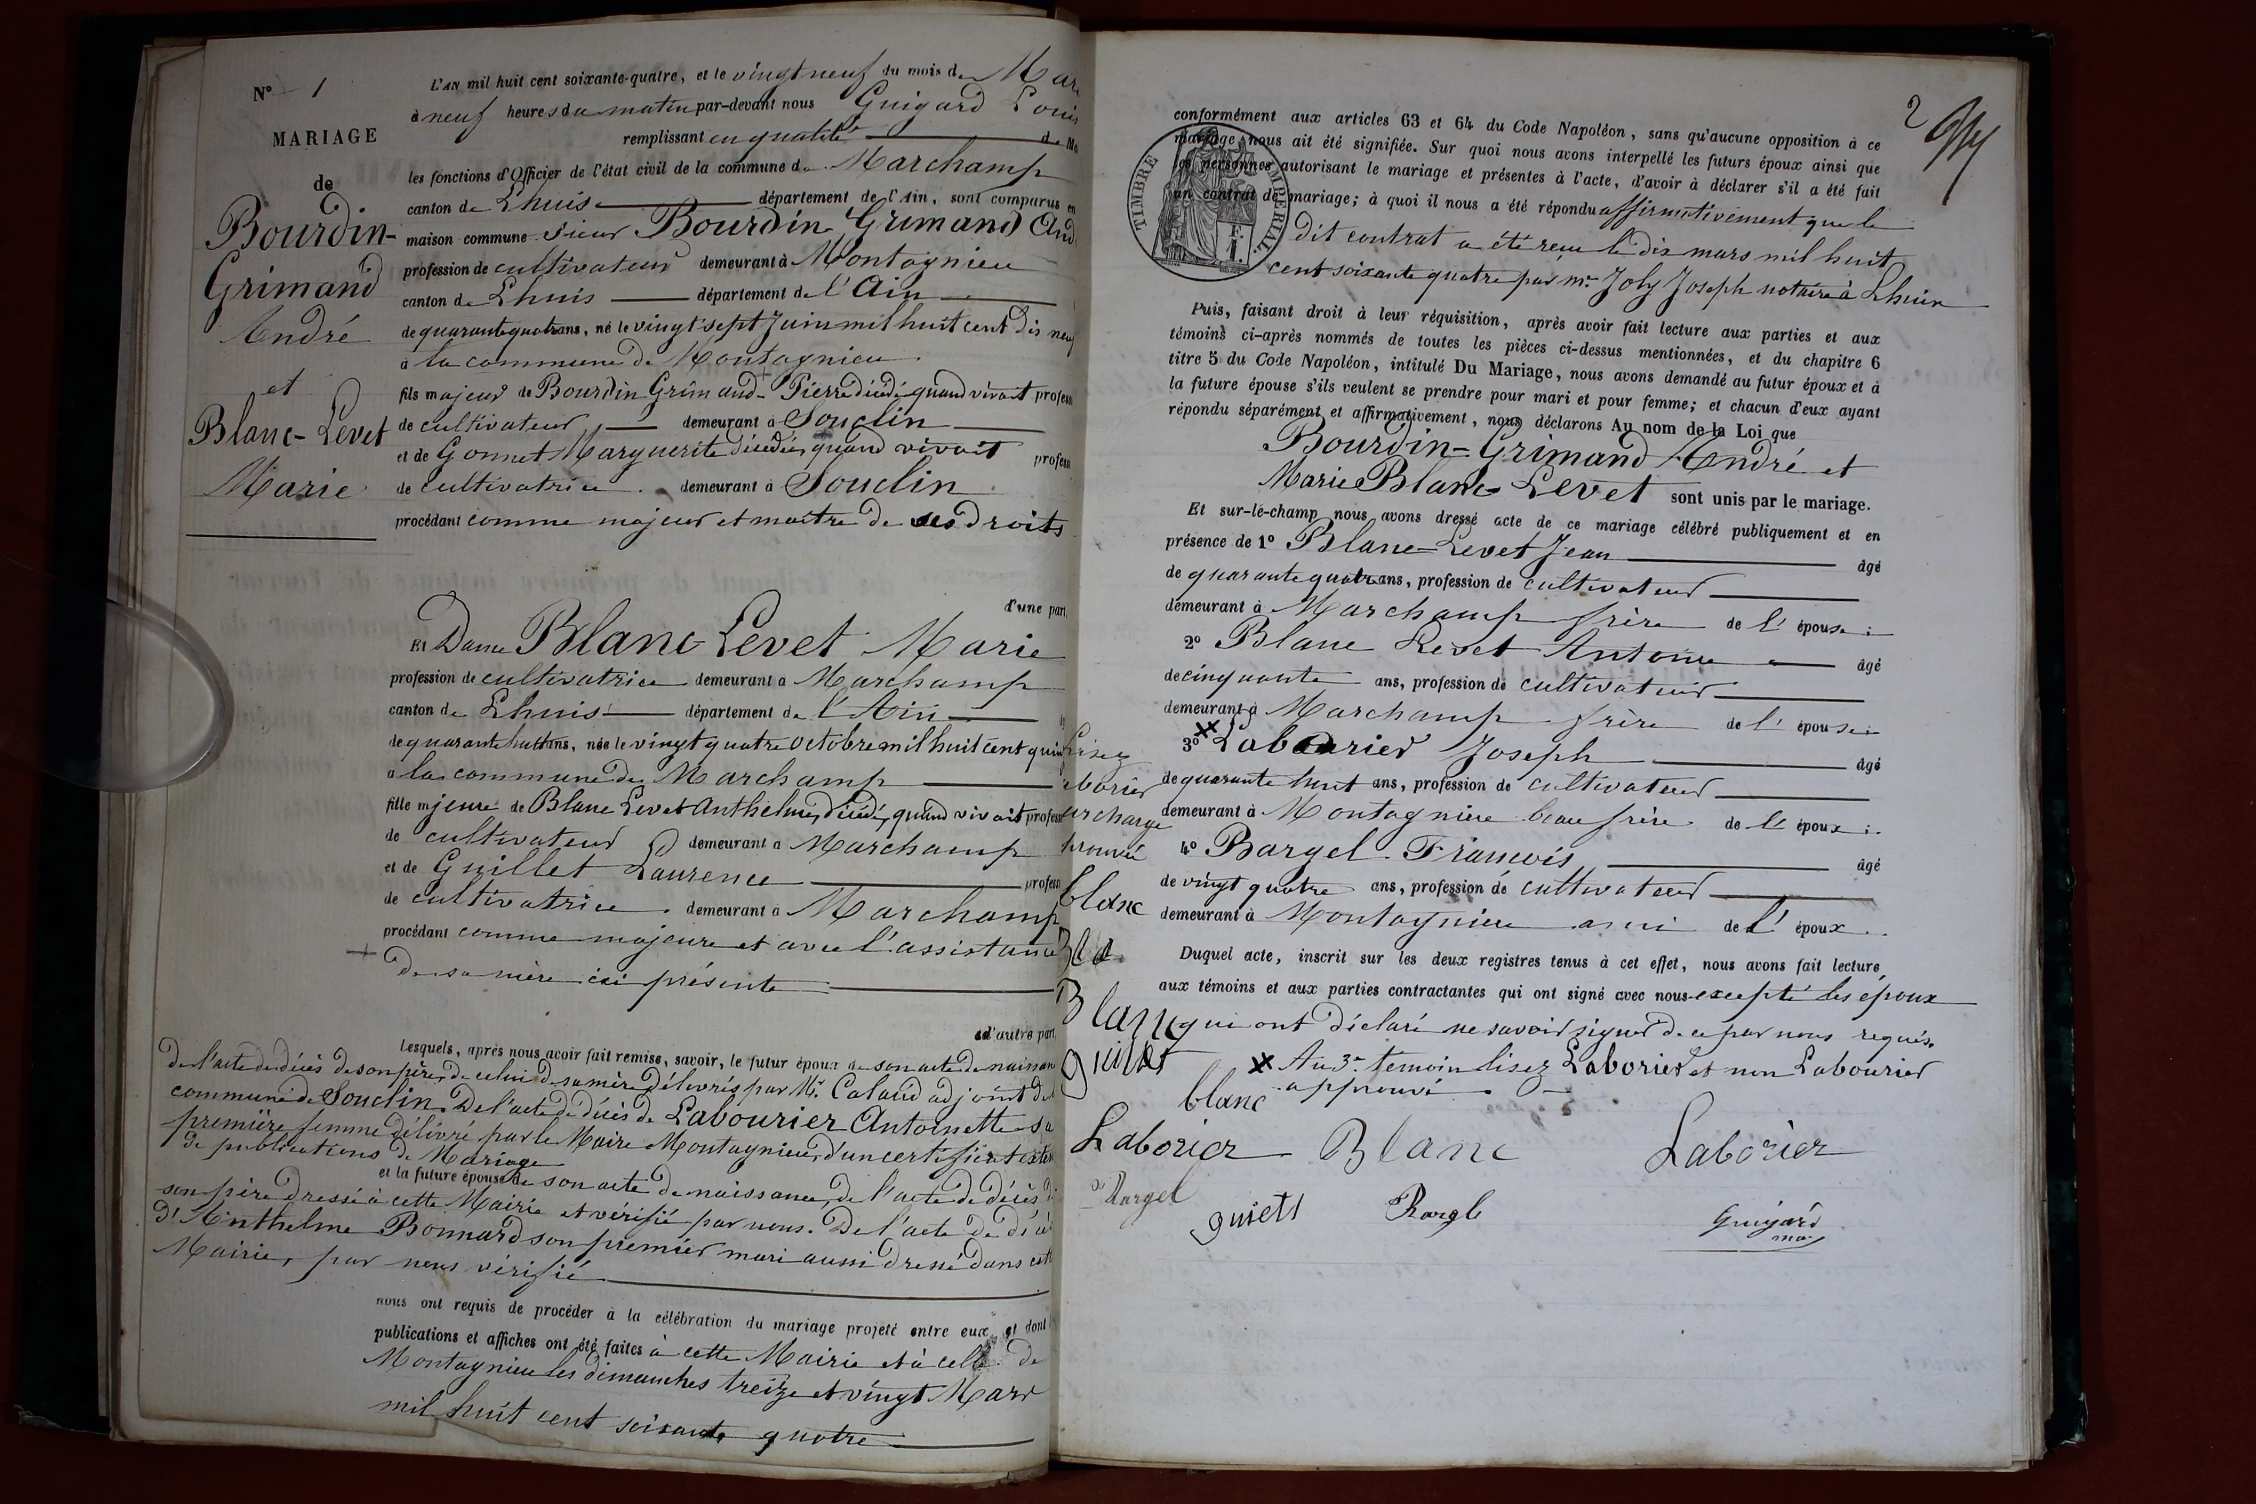 N° 1
MARIAGE
de
Bourdin-
Grimand
André
et
Blanc-Levet
Marie
L'AN mil huit cent soixante-quatre, et le vingt neuf du mois de Mars
à neuf heures du matin par-devant nous Guigard Louis
remplissant en qualité de Ma
les fonctions d'Officier de l'état civil de la commune de Marchamp
canton de Lhuis département de l'Ain, sont comparus en
maison commune sieur Bourdin Grimand And
profession de cultivateur demeurant à Montagnieu
canton de Lhuis département de l'Ain
de quarante quatre ans, né le vingt sept Juin mil huit cent dix neuf
à la commune de Montagnieu
fils majeur de Bourdin Grimand Pierre décédé quand vivait profess
de cultivateur demeurant à Souclin
et de Gonnet Marguerite décédée quand vivait profess
de cultivatrice demeurant à Souclin
procédant comme majeur et maître de ses droits
d'une part,
Et Dame Blanc-Levet Marie
profession de cultivatrice demeurant à Marchamp
canton de Lhuis département de l'Ain
de quarante huit ans, née le vingt quatre Octobre mil huit cent quin
à la commune de Marchamp
fille majeure de Blanc Levet Anthelme, décédé, quand vivait profess
de cultivateur demeurant à Marchamp
et de Guillet Laurence profess
de cultivatrice demeurant à Marchamp
procédant comme majeure et avec l'assistance
+ de sa mère ici présente
d'autre part,
Lesquels, après nous avoir fait remise, savoir, le futur époux de son acte de naissan
de l'acte de décès de son père, de celui de sa mère délivrés par Mr. Caland adjoint de
commune de Souclin. De l'acte de décès de Labourier Antoinette sa
première femme délivré par le Maire Montagnieu, d'un certificat
de publications de Mariage
et la future épouse de son acte de naissance, de l'acte de décès de
son père dressé à cette Mairie et vérifié par nous. De l'acte de décè
d'Anthelme Bonnard son premier mari aussi dressé dans cett
Mairie, par nous vérifié
nous ont requis de procéder à la célébration du mariage projeté entre eux et dont
publications et affiches ont été faites à cette Mairie et à celle de
Montagnieu les dimanches treize et vingt Mars
mil huit cent soixante quatre
Lisez
aborier
urcharge
prouvée
blanc
Blanc
guillet
2
TIMBRE IMPERIAL
conformément aux articles 63 et 64 du Code Napoléon, sans qu'aucune opposition à ce
mariage nous ait été signifiée. Sur quoi nous avons interpellé les futurs époux ainsi que
les personnes autorisant le mariage et présentes à l'acte, d'avoir à déclarer s'il a été fait
un contrat de mariage; à quoi il nous a été répondu affirmativement que le
dit contrat a été reçu le dix mars mil huit
cent soixante quatre par mr. Joly Joseph notaire à Lhuis
Puis, faisant droit à leur réquisition, après avoir fait lecture aux parties et aux
témoins ci-après nommés de toutes les pièces ci-dessus mentionnées, et du chapitre 6
titre 5 du Code Napoléon, intitulé Du Mariage, nous avons demandé au futur époux et à
la future épouse s'ils veulent se prendre pour mari et pour femme; et chacun d'eux ayant
répondu séparément et affirmativement, nous déclarons Au nom de la Loi que
Bourdin-Grimand André et
Marie Blanc-Levet sont unis par le mariage.
Et sur-le-champ nous avons dressé acte de ce mariage célébré publiquement et en
présence de 1° Blanc-Levet Jean âgé
de quarante quatre ans, profession de cultivateur
demeurant à Marchamp frère de l'épouse;
2° Blanc Levet Antoine âgé
de cinquante ans, profession de cultivateur
demeurant à Marchamp frère de l'épouse;
3° Labourier Joseph âgé
de quarante huit ans, profession de cultivateur
demeurant à Montagnieu beau frère de l'époux;
4° Bargel François âgé
de vingt quatre ans, profession de cultivateur
demeurant à Montagnieu ami de l'époux.
Duquel acte, inscrit sur les deux registres tenus à cet effet, nous avons fait lecture
aux témoins et aux parties contractantes qui ont signé avec nous excepté les époux
qui ont déclaré ne savoir signer de ce par nous requis.
x Au 3e. temoin lisez Laborier et non Labourier
approuvé
blanc
Laborier Blanc Laborier
Bargel
guiett Rargle Guigard